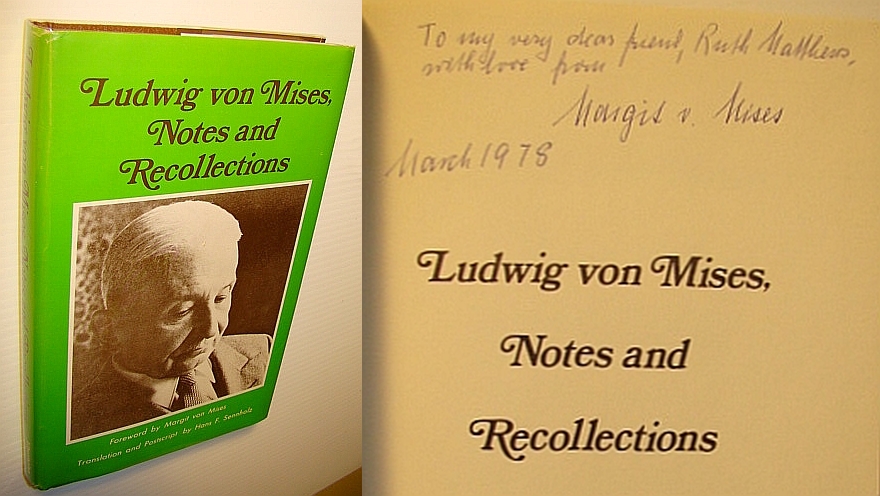 Ludwig von Mises,
Notes and
Recollections
Foreword by Margit von Mises
Translation and Postscript by Hans F. Sennholz
To my very dear friend, Ruth Matthews,
with love from
Margit v. Mises
March 1978
Ludwig von Mises,
Notes and
Recollections